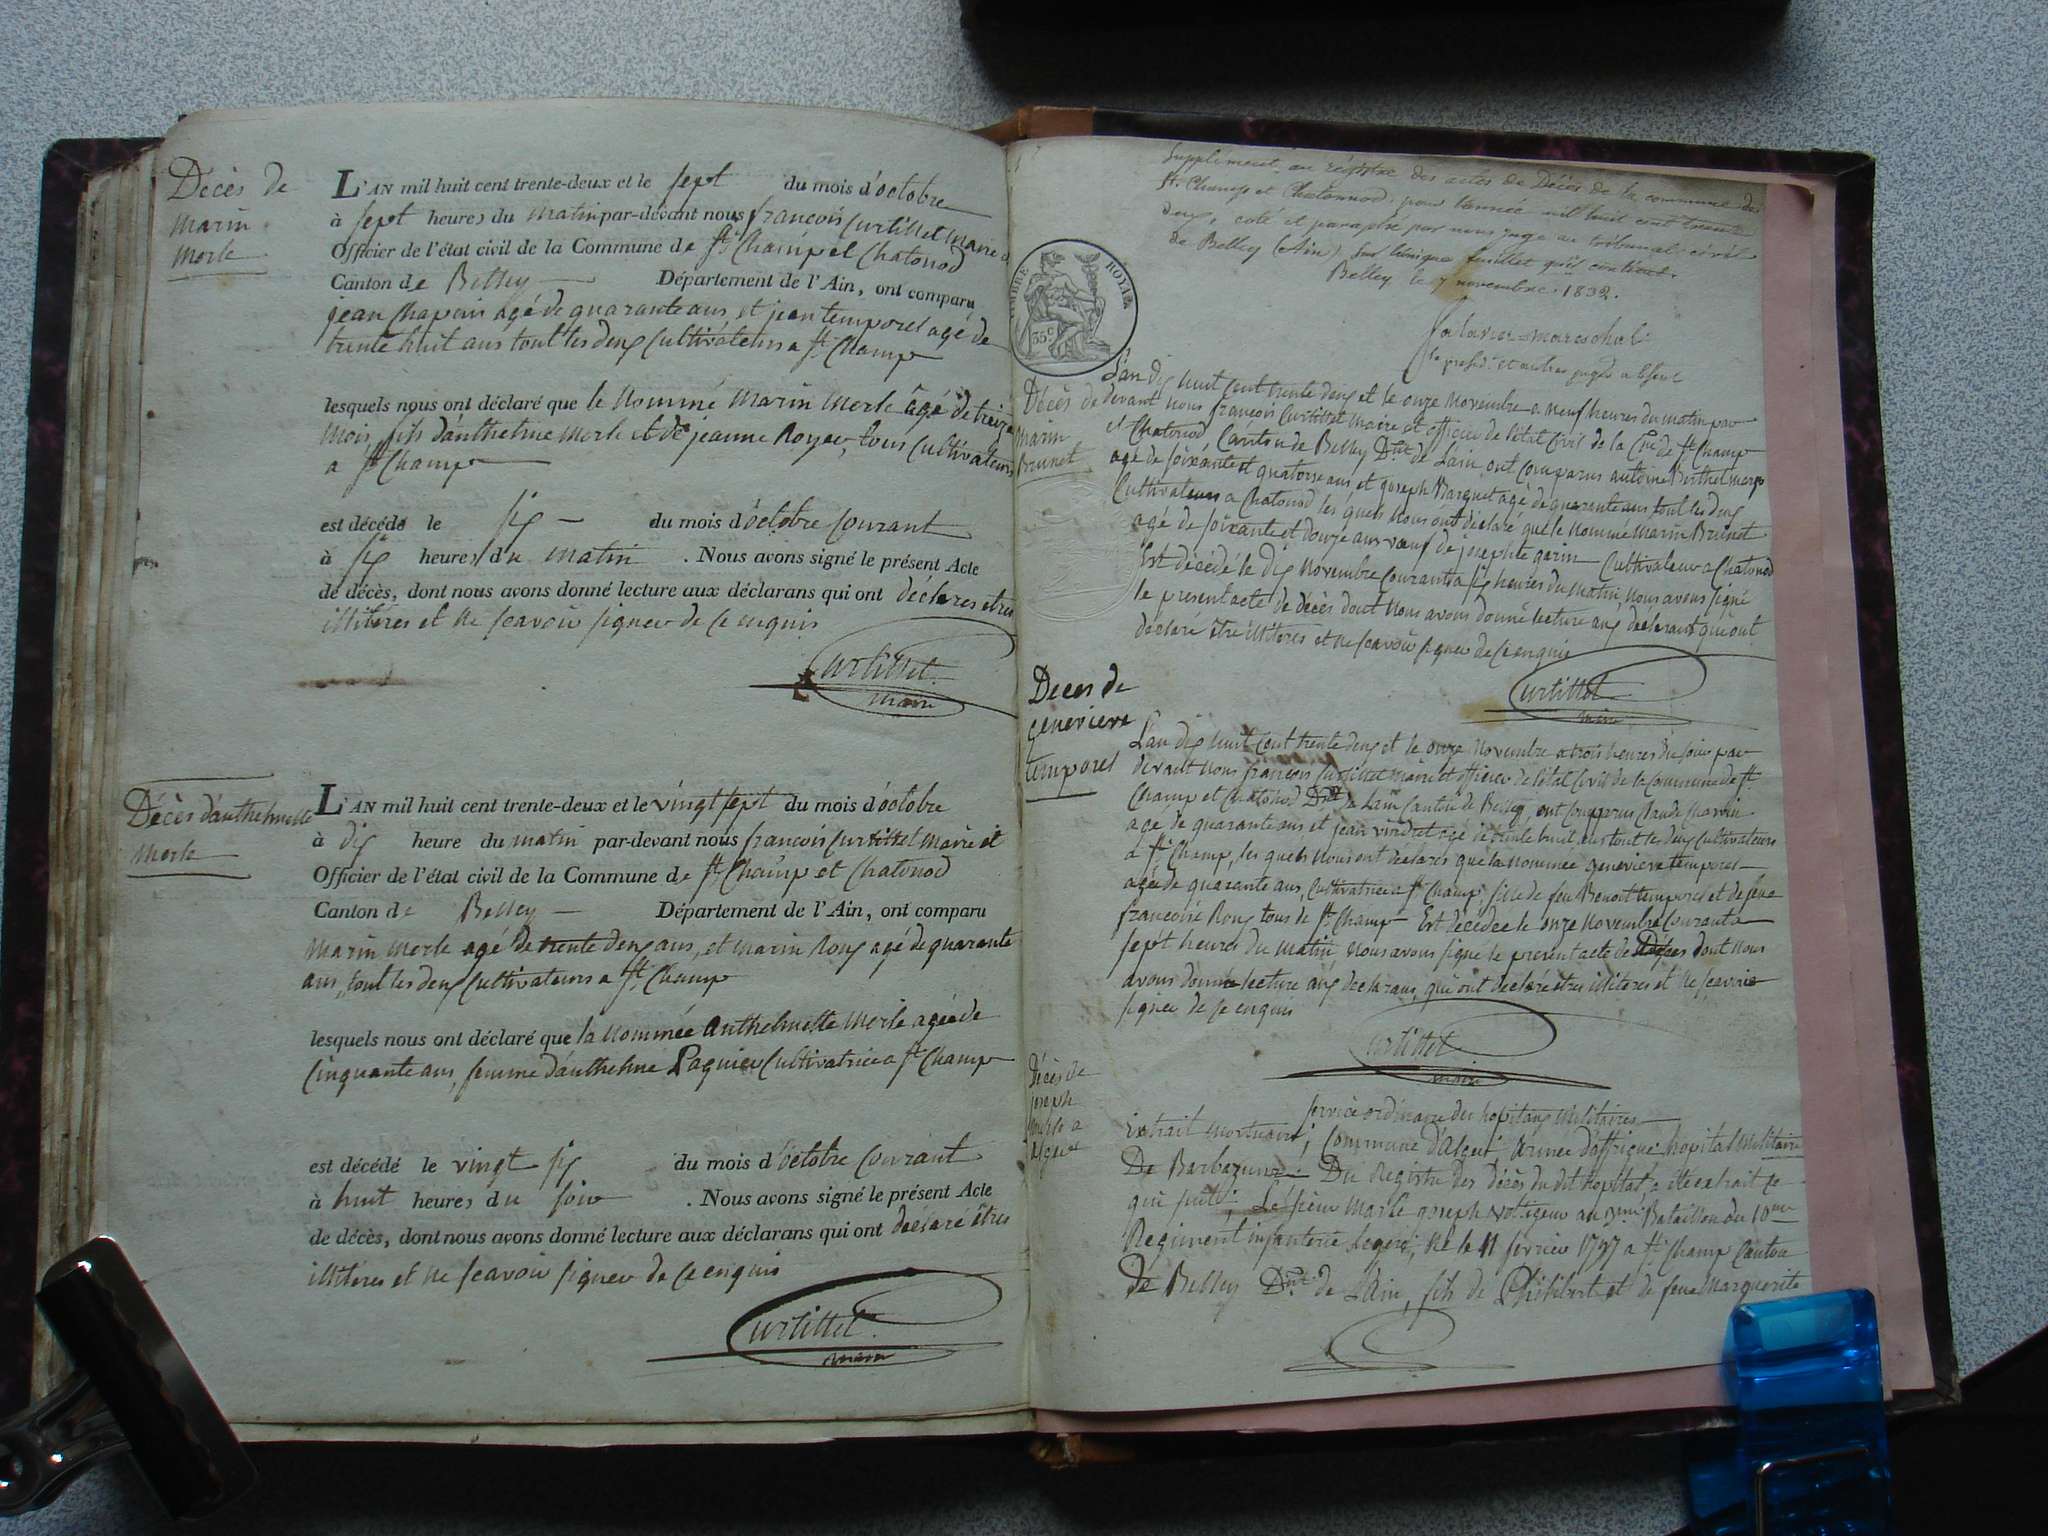 Décès de
marin
merle
L'AN mil huit cent trente-deux et le sept du mois d'octobre
à sept heures du matin par-devant nous françois Curtillet maire et
Officier de l'état civil de la Commune de St Champ et Chatonod
Canton de Belley Département de l'Ain, ont comparu
jean Chapuis agé de quarante ans et jean temporel agé de
trente huit ans tout les deux Cultivateurs a St Champ
lesquels nous ont déclaré que le nommé marin merle agé de treize
mois, fils d'anthelme merle et de jeanne Royer, tous Cultivateurs
a St Champ
est décédé le six du mois d'octobre courant
à six heures du matin. Nous avons signé le présent Acte
de décès, dont nous avons donné lecture aux déclarans qui ont déclares etres
illitéres et ne scavoir signer de ce enquis
Curtillet
maire
Décès d'anthelmette
merle
L'AN mil huit cent trente-deux et le vingt sept du mois d'octobre
à dix heure du matin par-devant nous francois Curtillet maire et
Officier de l'état civil de la Commune de St Champ et Chatonod
Canton de Belley Département de l'Ain, ont comparu
marin merle agé de trente deux ans, et marin Roux agé de quarante
ans, tout les deux Cultivateurs a St Champ
lesquels nous ont déclaré que la nommée anthelmette merle agée de
Cinquante ans, femme d'anthelme Paquier Cultivatrice a St Champ
est décédé le vingt six du mois d'octobre courant
à huit heures du soir. Nous avons signé le présent Acte
de décès, dont nous avons donné lecture aux déclarans qui ont déclaré êtres
illitéres et ne scavoir signer de ce enquis
Curtillet
maire
Supplément au régistre des actes de Décès de la commune de
St. Champ et Chatonnod, pour l'année mil huit cent trente
deux, coté et paraphé par nous juge au tribunal civil
de Belley (Ain) sur l'unique feuillet qu'il contient.
Belley le 7 novembre 1832.
TIMBRE ROYAL
35c
Décès de
marin
brunet
L'an dix huit cent trente deux et le onze novembre a neuf heures du matin par
devant nous françois Curtillet maire et officier de l'état Civil de la Cne de St Champ
et Chatonod, Canton de Belley Dmt de L'ain ont comparus antoine Berthet
agé de soixante et quatorze ans et joseph Marquet agé de quarante ans tout les deux
Cultivateurs a Chatonod les quels nous ont déclaré que le nommé marin Brunet
agé de soixante et douze ans veuf de josephte garin Cultivateur a Chatonod
Est décédé le dix novembre courant a six heures du matin, nous avons signé
le present acte de décès dont nous avons donné lecture aux declarant qui ont
declaré être illiteres et ne scavoir signer de ce enquis
Curtillet
maire
Deces de
genevieve
temporel
L'an dix huit Cent trente deux et le onze novembre a trois heures du soir par
devant nous françois Curtillet maire et officier de l'etat Civil de la Commune de St
Champ et Chatonod Dmt de Lain Canton de Belley, ont comparus Claude marin
agé de quarante ans et jean vindret agé de trente huit ans tout les deux Cultivateurs
a St Champ, les quels nous ont déclarés que la nommée genevieve temporel
agée de quarante ans, Cultivatrice a St Champ, fille de feu Benoit temporel et de feue
francoise Roux tous de St Champ Est décédée le onze novembre Courant a
sept heures du matin, nous avons signé le present acte de Décès dont nous
avons donné lecture aux declarans, qui ont declaré etres illiteres et ne scavoir
signer de ce enquis
Curtillet
maire
Décès de
joseph
merle a
alger
Service ordinaire des hopitaux militaires
Extrait mortuaire; Commune d'alger, armée d'affrique hôpital militaire
De Barbazun. Du Registre des décès du dit hopital, a été extrait ce
qui suit; Le sieur Marle joseph Voltigeur au 3me Bataillon du 10me
Regiment infanterie Legère, né le 11 fevrier 1797 a St Champ Canton
de Belley Dmt de L'ain, fils de Philibert et de feue Marguerite